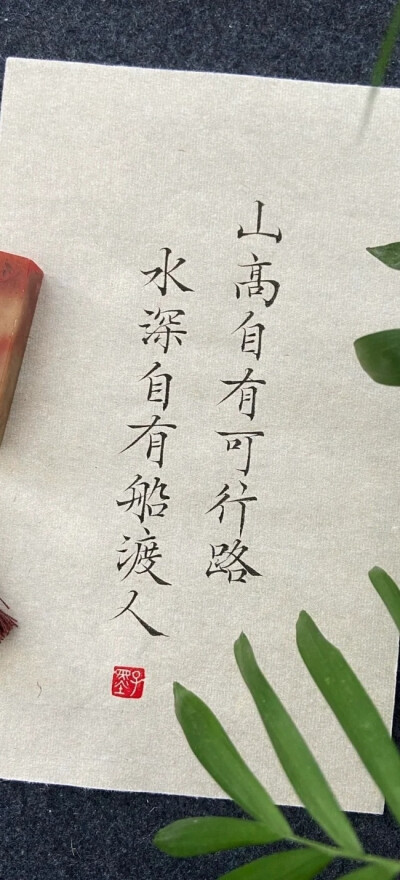 山高自有可行路
水深自有船渡人
子墨